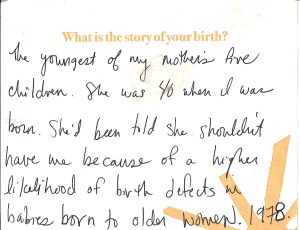 What is the story of your birth?
The youngest of my mother's five
children. She was 40 when I was
born. She'd been told she shouldn't
have me because of a higher
likelihood of birth defects in
babies born to older women. 1978.